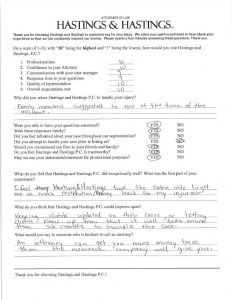 ATTORNEYS AT LAW
HASTINGS & HASTINGS.
Thank you for choosing Hastings and Hastings to represent you for your injury. We value your opinions and want to hear about your
experience so that we can constantly improve our service. Please spend a few minutes answering these questions. Thank you.
On a scale of 1-10, with "10" being the highest and "1" being the lowest, how would you rate Hastings and
Hastings, P.C.?
1. Professionalism 10
2. Confidence in your Attorney 10
3. Communication with your case manager
4. Response time to your questions
5. Quality of representation 10
6. Overall expectations met 10
Why did you select Hastings and Hastings P.C. to handle your injury?
Family members suggested to me at the time of the
accident.
Were you able to have your questions answered? YES NO
Were these responses timely? YES NO
Did you feel informed about your case throughout our representation? YES NO
Did you attempt to handle your case prior to hiring us? YES NO
Would you recommend our firm to your friends and family? YES NO
Do you feel Hastings and Hastings P.C. is trustworthy? YES NO
May we use your statements/comments for promotional purposes? YES NO
What do you feel that Hastings and Hastings P.C. did exceptionally well? What was the best part of your
experience?
I feel Hastings & Hastings took the extra mile to get
me restitution back for my injuries
What do you think that Hastings and Hastings P.C. could improve upon?
Keeping clients updated on their cases or letting
clients know up front that it will take more
than six months to handle the case.
What would you say to someone who is hesitant to call an attorney?
An attorney can get you more money back
than the insurance company will give you.
Thank you for choosing Hastings and Hastings P.C.!